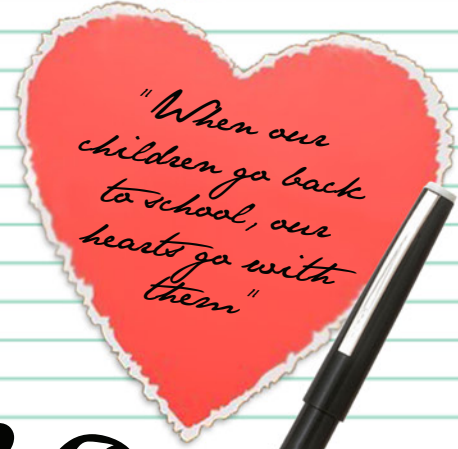 "When our
children go back
to school, our
hearts go with
them"